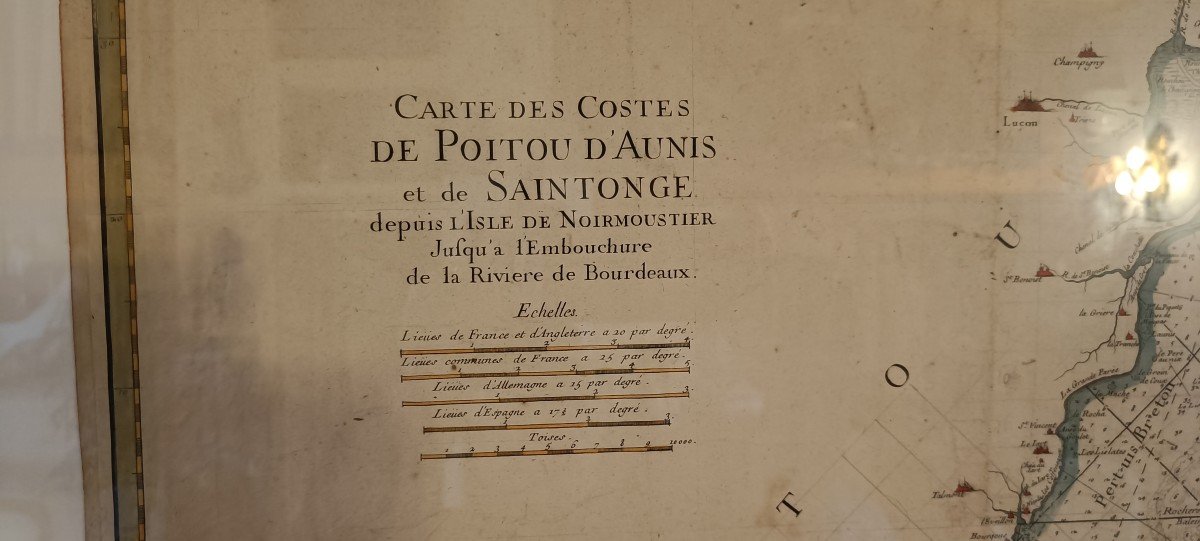 CARTE DES COSTES
DE POITOU D'AUNIS
et de SAINTONGE
depuis L'ISLE DE NOIRMOUSTIER
Juſqu'a l'Embouchure
de la Riviere de Bourdeaux.
Echelles.
Lieües de France et d'Angleterre a 20 par degré.
1 2 3 4
Lieües communes de France a 25 par degré.
1 2 3 4 5
Lieües d'Allemagne a 15 par degré.
1 2 3
Lieues d'Espagne a 17½ par degré.
1 2 3
Toises.
1 2 3 4 5 6 7 8 9 10000.
Champigny
Luçon
Chenel de
U
St. Benoist
R. de St. Benoist
la Griere
la Tranche
O
la Grande Parée
Roche
St. Vincent
Le Iart
Talmont
T
Pertuis Breton